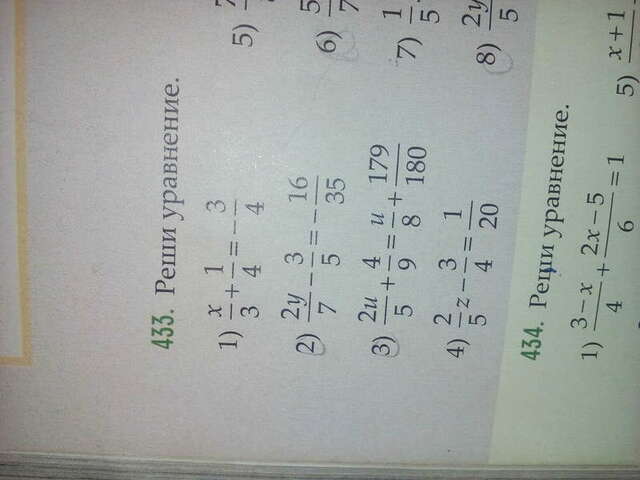 433. Реши уравнение.
1) x/3 + 1/4 = - 3/4
2) 2y/7 - 3/5 = - 16/35
3) 2u/5 + 4/9 = u/8 + 179/180
4) 2/5 z - 3/4 = 1/20
5)
6)
7) 1/5
8) 2y/5
434. Реши уравнение.
1) (3-x)/4 + (2x-5)/6 = 1
5) x+1